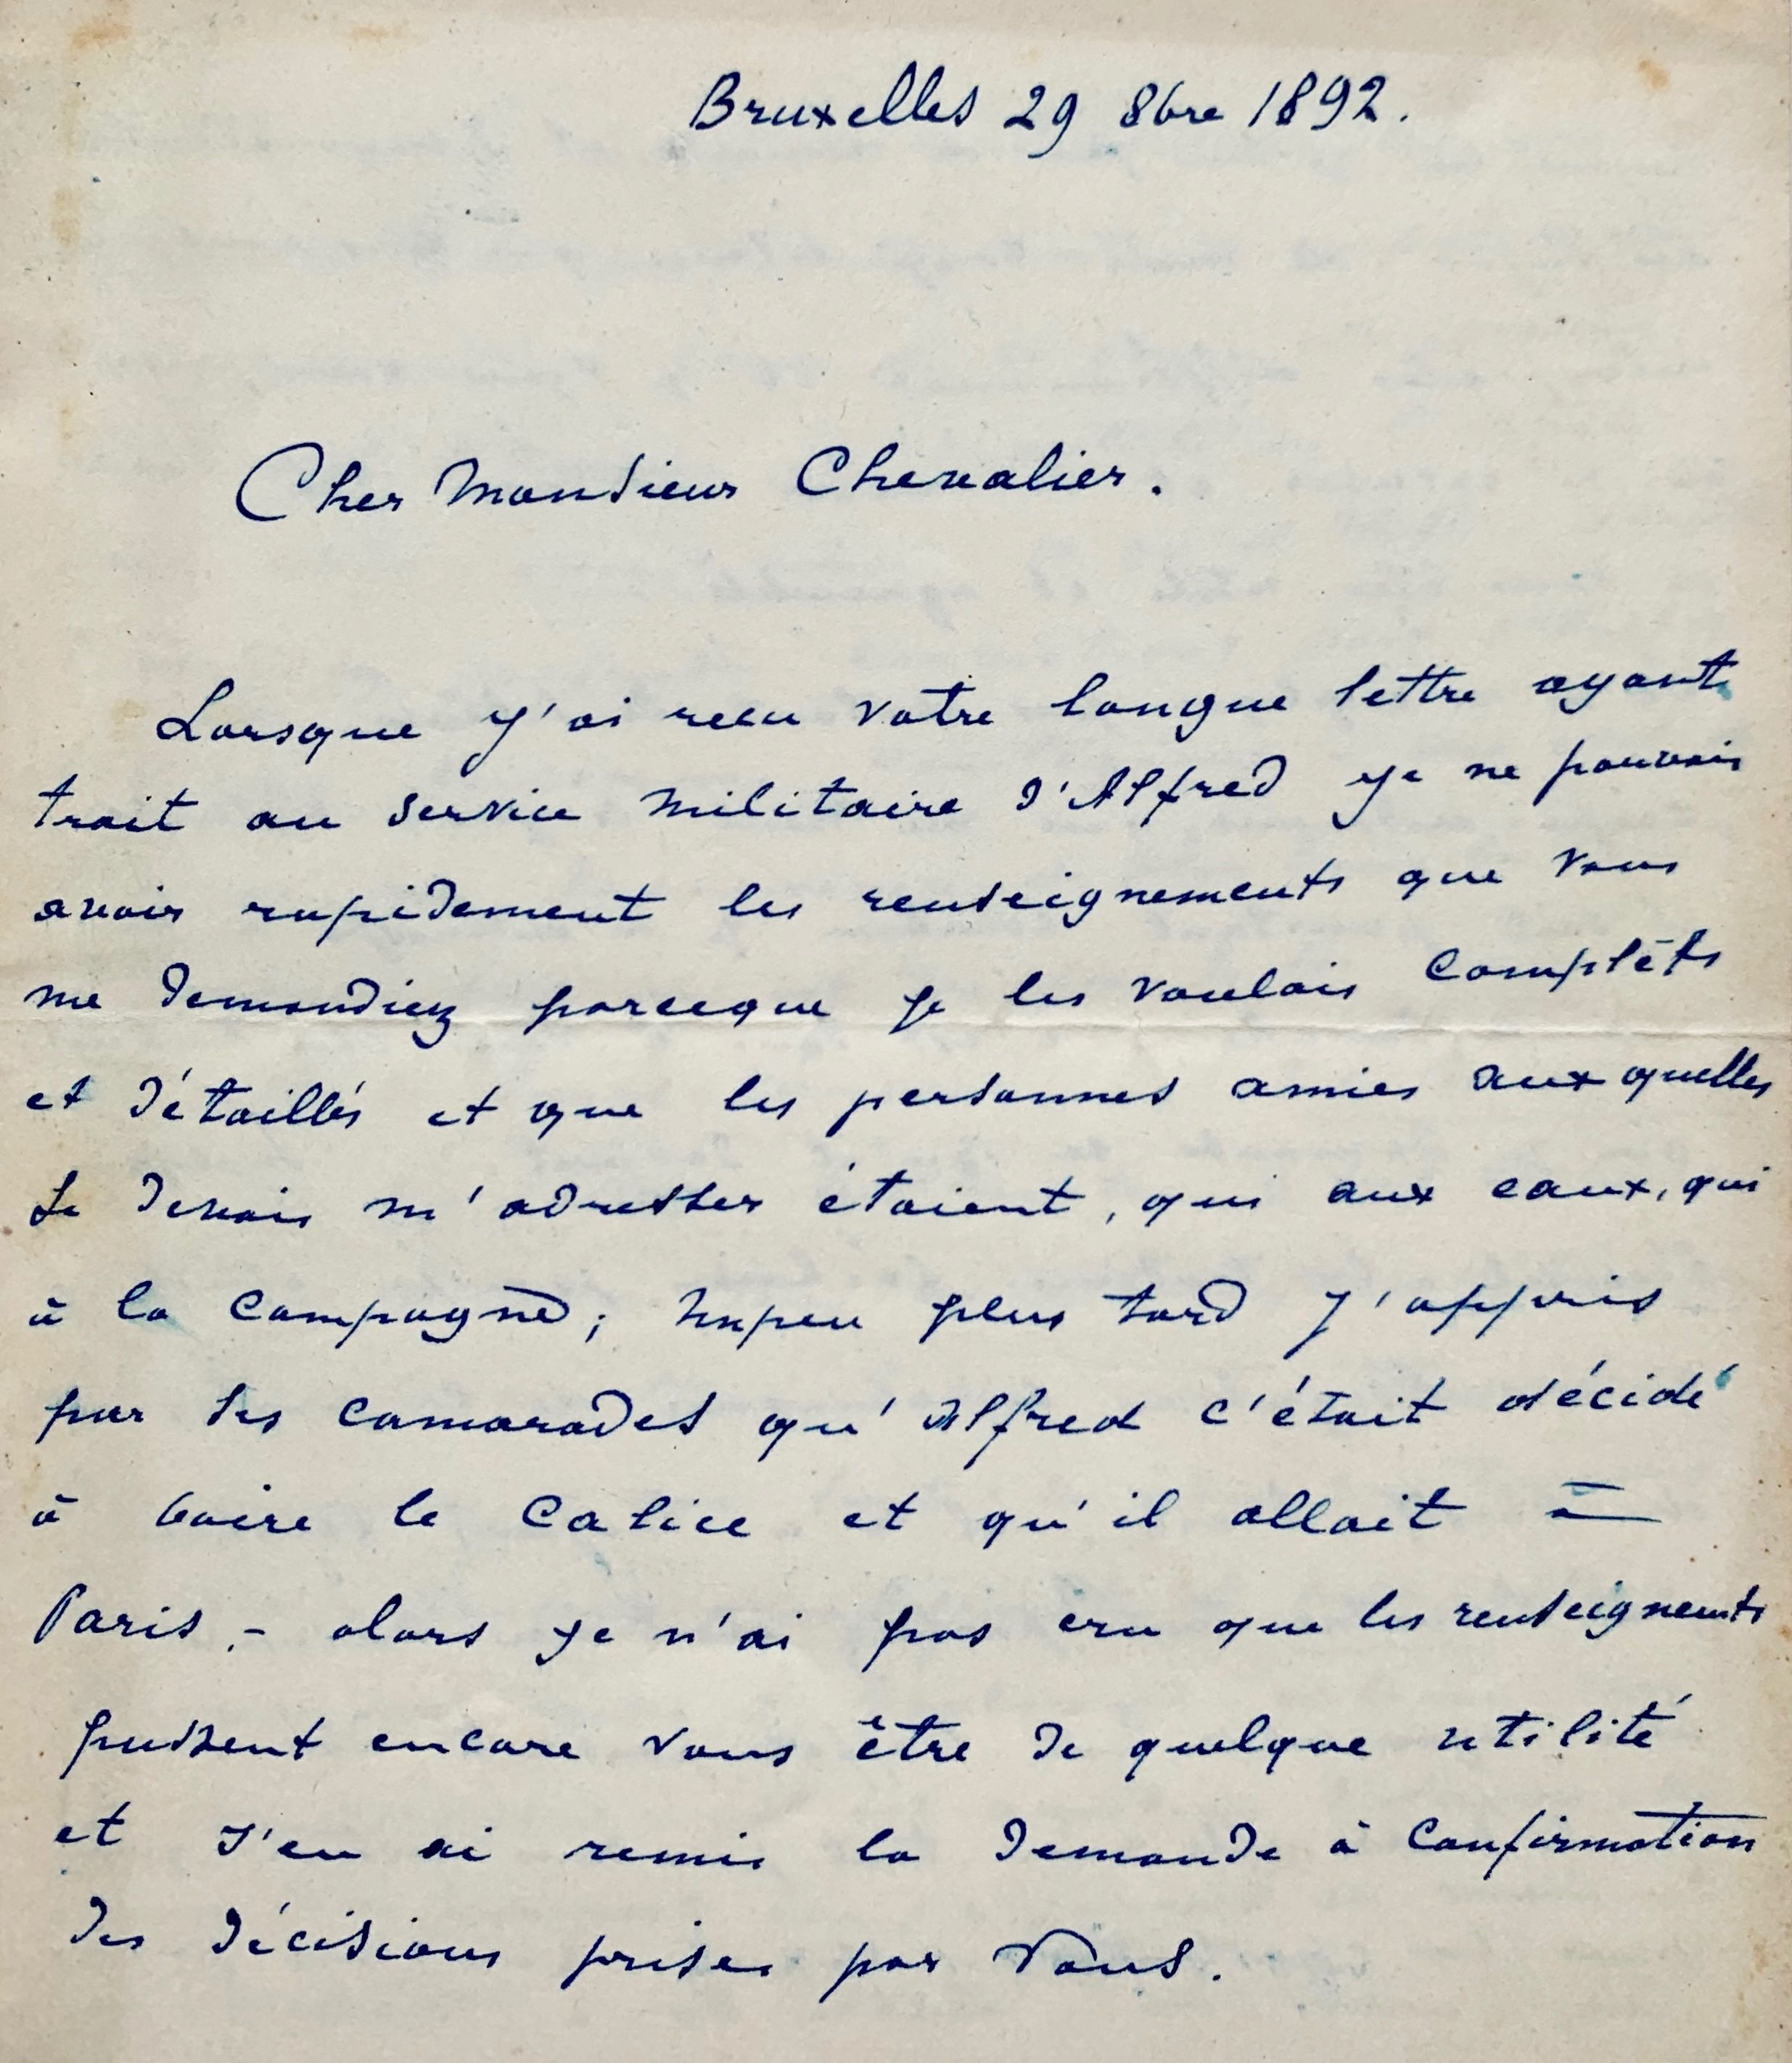 Bruxelles 29 8bre 1892.
Cher Monsieur Chevalier.
Lorsque j'ai recu votre longue lettre ayant
trait au service militaire d'Alfred je ne pouvais
avoir rapidement les renseignements que vous
me demandiez parceque je les voulais complèts
et détaillés et que les personnes amies aux quelles
Je devais m'adresser étaient, qui aux eaux, qui
à la campagne; unpeu plus tard j'appris
par ses camarades qu'Alfred c'était décidé
à boire le calice et qu'il allait à
Paris. - alors je n'ai pas cru que les renseignements
pussent encore vous être de quelque utilité
et j'en ai remis la demande à confirmation
des décisions prises par vous.